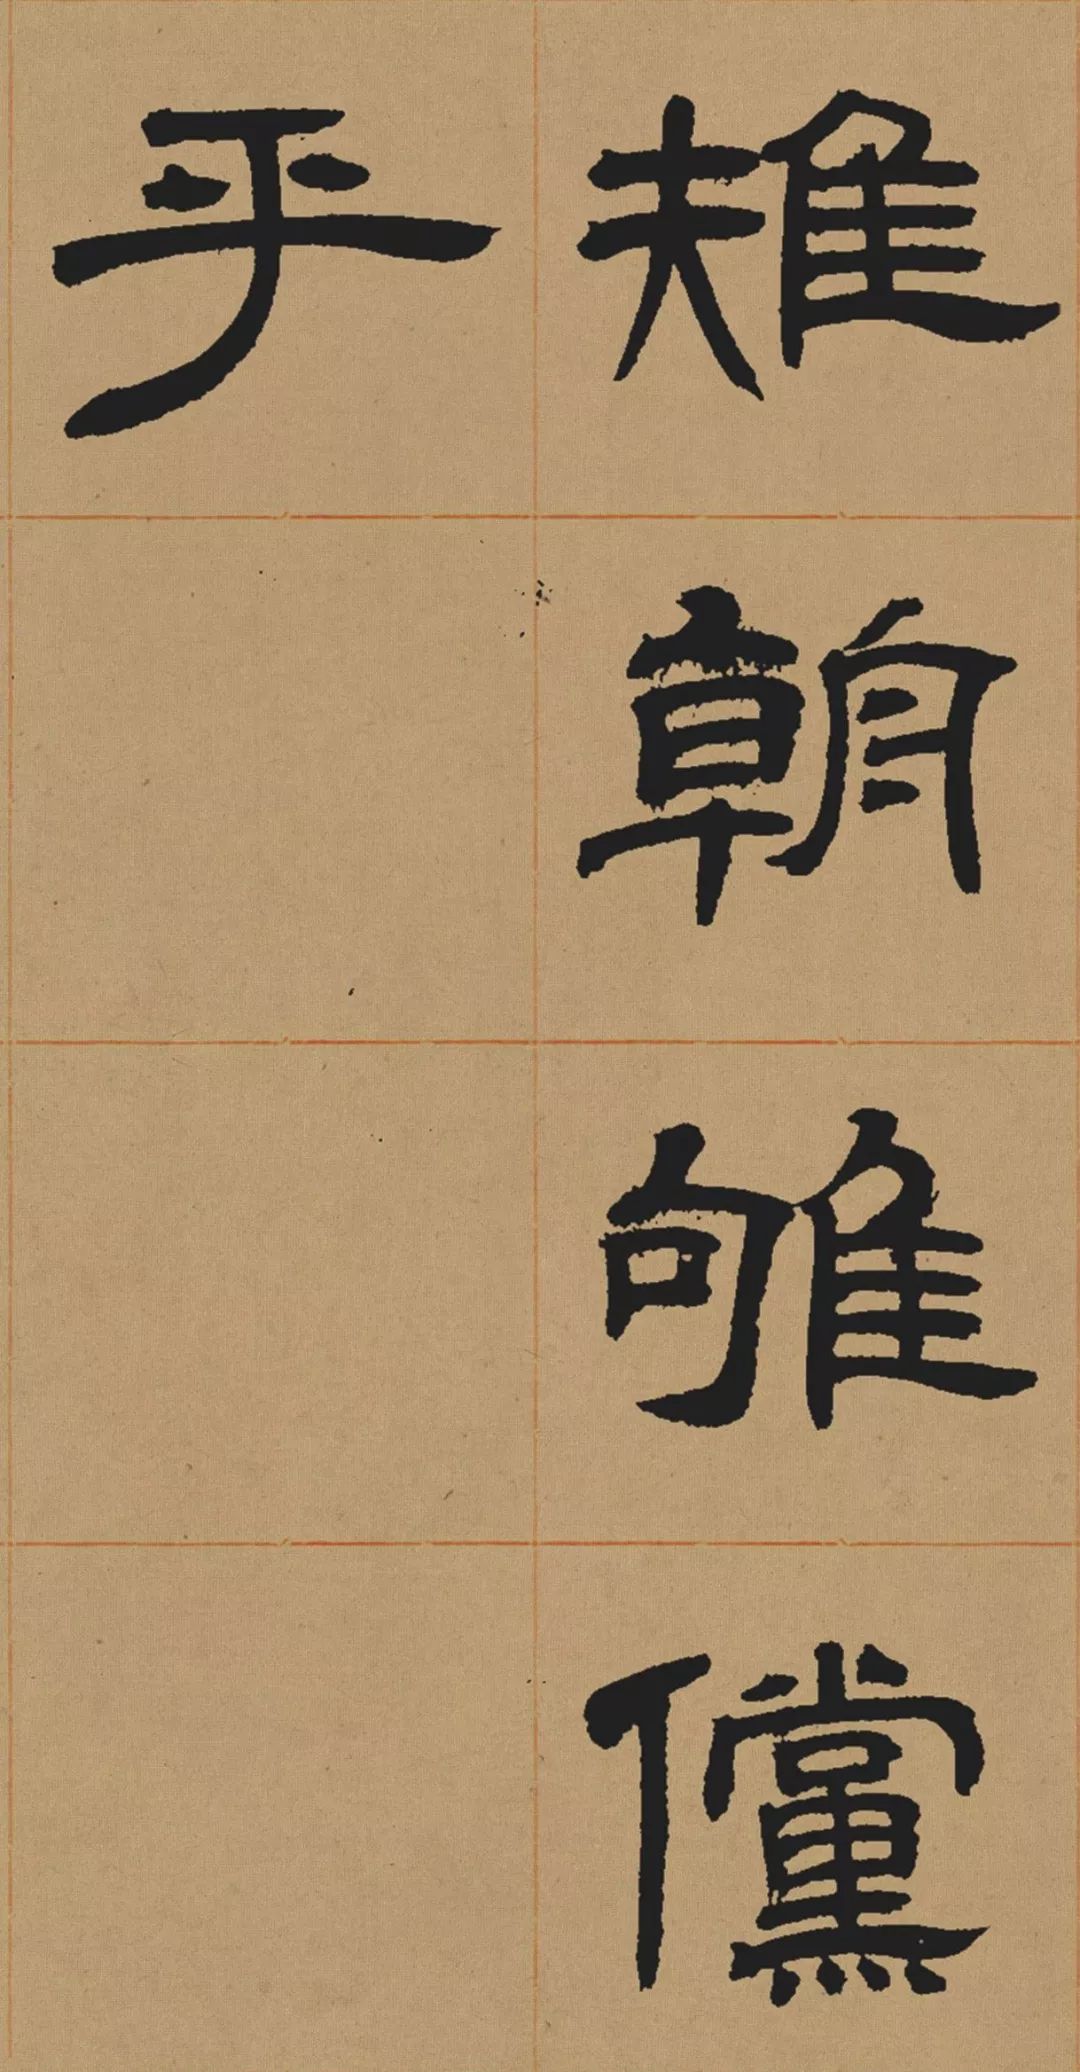 雉朝雊儻
乎